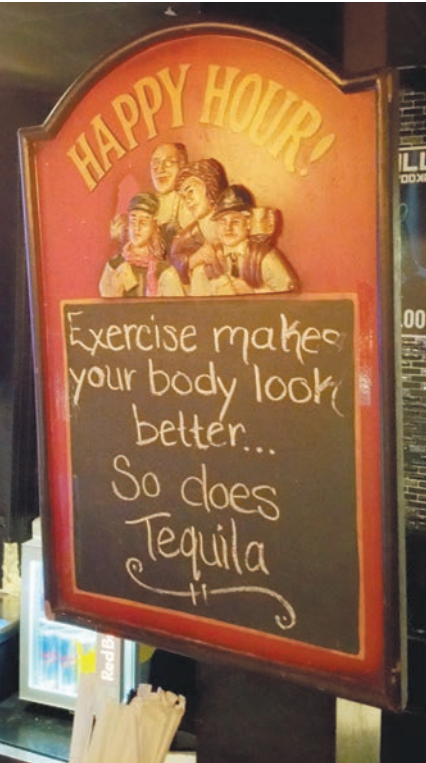 HAPPY HOUR!
Exercise makes
your body look
better...
So does
Tequila
.00
Red B